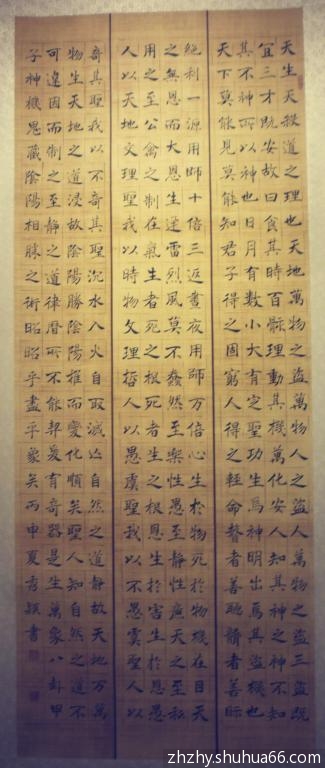 天生天殺道之理也天地萬物之盜萬物人之盜人萬物之盜三盜既
宜三才既安故曰食其時百骸理動其機萬化安人知其神之神不知
其不神所以神也日月有數小大有定聖功生焉神明出焉其盜機也
天下莫能見莫能知君子得之固窮人得之輕命瞽者善聽聾者善眎
絕利一源用師十倍三返晝夜用師萬倍心生於物死於物機在目天
之無恩而大恩生迅雷烈風莫不蠢然至樂性愚至靜性廉天之至私
用之至公禽之制在氣生者死之根死者生之根恩生於害生於恩愚
人以天地文理聖我以時物文理哲人以愚虞聖我以不愚虞聖人以
奇其聖我以不奇其聖沉水入火自取滅亡自然之道靜故天地萬
物生天地之道浸故陰陽勝陰陽推而變化順矣聖人知自然之道不
可違因而制之至靜之道律曆所不能契爰有奇器是生萬象八卦甲
子神機鬼藏陰陽相勝之術昭昭乎盡乎象矣丙申夏秀穎書
zhzhy.shuhua66.com